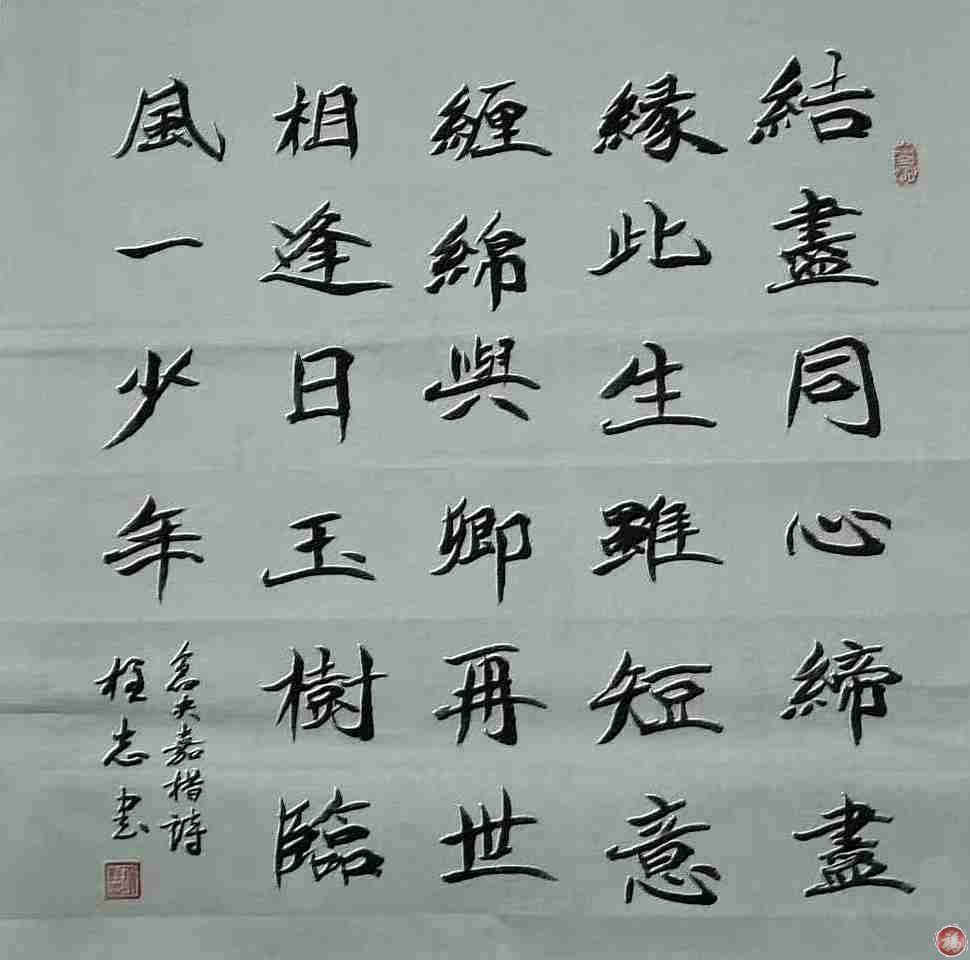 結盡同心締盡
緣此生雖短意
纏綿與卿再世
相逢日玉樹臨
風一少年
倉央嘉措詩
桂志書
福